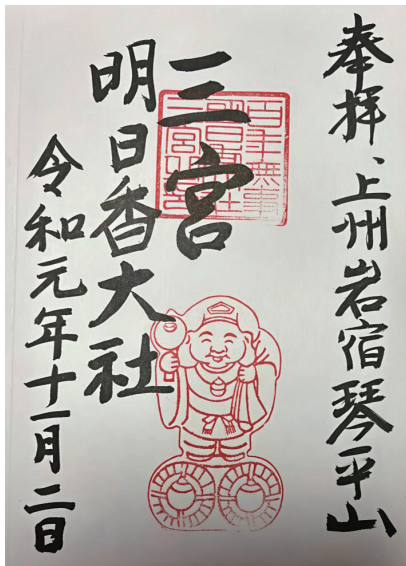 奉拝、上州岩宿琴平山
三宮
明日香大社
令和元年十一月二日